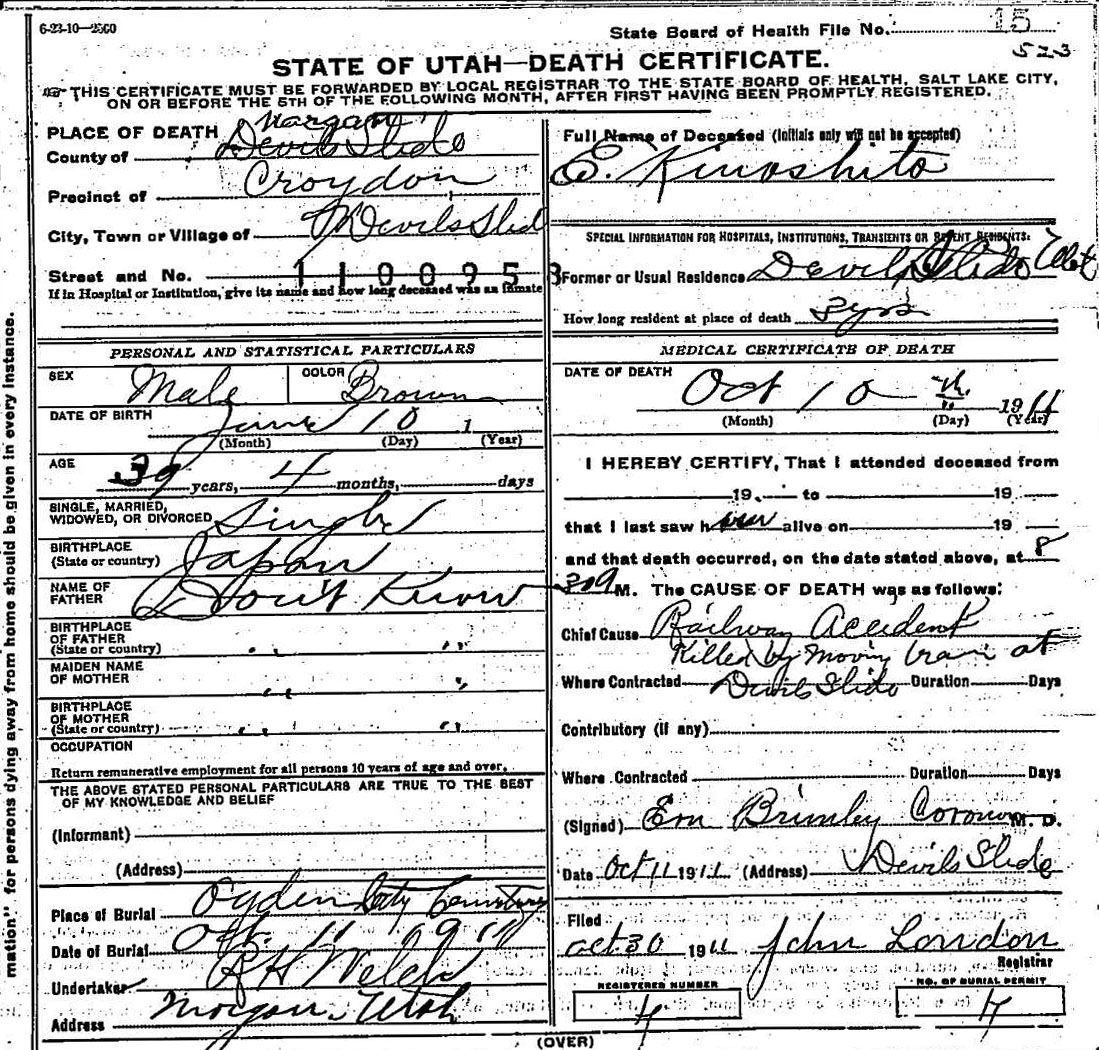 6-23-10—2500
State Board of Health File No. 15
523
STATE OF UTAH—DEATH CERTIFICATE.
THIS CERTIFICATE MUST BE FORWARDED BY LOCAL REGISTRAR TO THE STATE BOARD OF HEALTH, SALT LAKE CITY,
ON OR BEFORE THE 5TH OF THE FOLLOWING MONTH, AFTER FIRST HAVING BEEN PROMPTLY REGISTERED.
PLACE OF DEATH Morgan
County of Devils Slide
Precinct of Croydon
City, Town or Village of Devils Slid
Street and No. 1100953
If in Hospital or Institution, give its name and how long deceased was an inmate
Full Name of Deceased (Initials only will not be accepted)
E. Kinoshito
SPECIAL INFORMATION FOR HOSPITALS, INSTITUTIONS, TRANSIENTS OR RECENT RESIDENTS:
Former or Usual Residence Devils Slide Utah
How long resident at place of death 3 yrs
PERSONAL AND STATISTICAL PARTICULARS
SEX Male COLOR Brown
DATE OF BIRTH June 10 1
(Month) (Day) (Year)
AGE 39 years, 4 months, days
SINGLE, MARRIED,
WIDOWED, OR DIVORCED Single
BIRTHPLACE
(State or country) Japan
NAME OF
FATHER Don't Know
BIRTHPLACE
OF FATHER
(State or country) " "
MAIDEN NAME
OF MOTHER " "
BIRTHPLACE
OF MOTHER
(State or country) " "
OCCUPATION
Return remunerative employment for all persons 10 years of age and over.
THE ABOVE STATED PERSONAL PARTICULARS ARE TRUE TO THE BEST
OF MY KNOWLEDGE AND BELIEF
(Informant)
(Address)
Place of Burial Ogden City Cemetery
Date of Burial Oct. 11 1911
Undertaker R H Welch
Address Morgan, Utah
MEDICAL CERTIFICATE OF DEATH
DATE OF DEATH
Oct 10 th 1911
(Month) (Day) (Year)
I HEREBY CERTIFY, That I attended deceased from
19 to 19
that I last saw h alive on 19
and that death occurred, on the date stated above, at 8
M. The CAUSE OF DEATH was as follows:
Chief Cause Railway Accident
Killed by moving train at
Where Contracted Devils Slide Duration Days
Contributory (if any)
Where Contracted Duration Days
(Signed) Em Brimley Coroner M. D.
Date Oct 11 1911 (Address) Devils Slide
Filed
Oct 30 1911 John London
Registrar
REGISTERED NUMBER
4
NO. OF BURIAL PERMIT
4
(OVER)
mation" for persons dying away from home should be given in every instance.